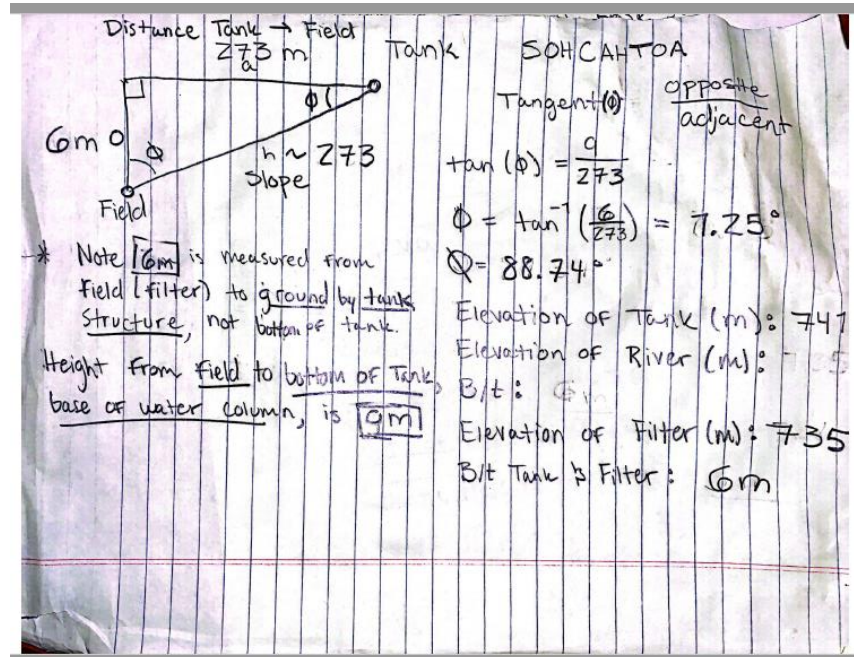 Distance Tank → Field
273 m
a
Tank
6m O
Φ
Φ
h ~ 273
Slope
Field
* Note 6m is measured from
field (filter) to ground by tank
structure, not bottom of tank.
Height from field to bottom of Tank,
base of water column, is 9m
SOH CAH TOA
Tangent(Φ) opposite
adjacent
tan (Φ) = 9
273
Φ = tan⁻¹ (6/273) = 1.25°
Φ = 88.74°
Elevation of Tank (m): 741
Elevation of River (m):
B/t: 6m
Elevation of Filter (m): 735
B/t Tank & Filter: 6m